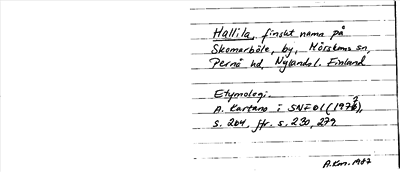 Hallila, finskt namn på
Skomarböle, by, Mörskoms sn,
Pernå hd, Nylands l. Finland
Etymologi:
A. Kartano i SNF 61 (1973),
s. 204, jfr. s. 230, 279
A.Km. 1987